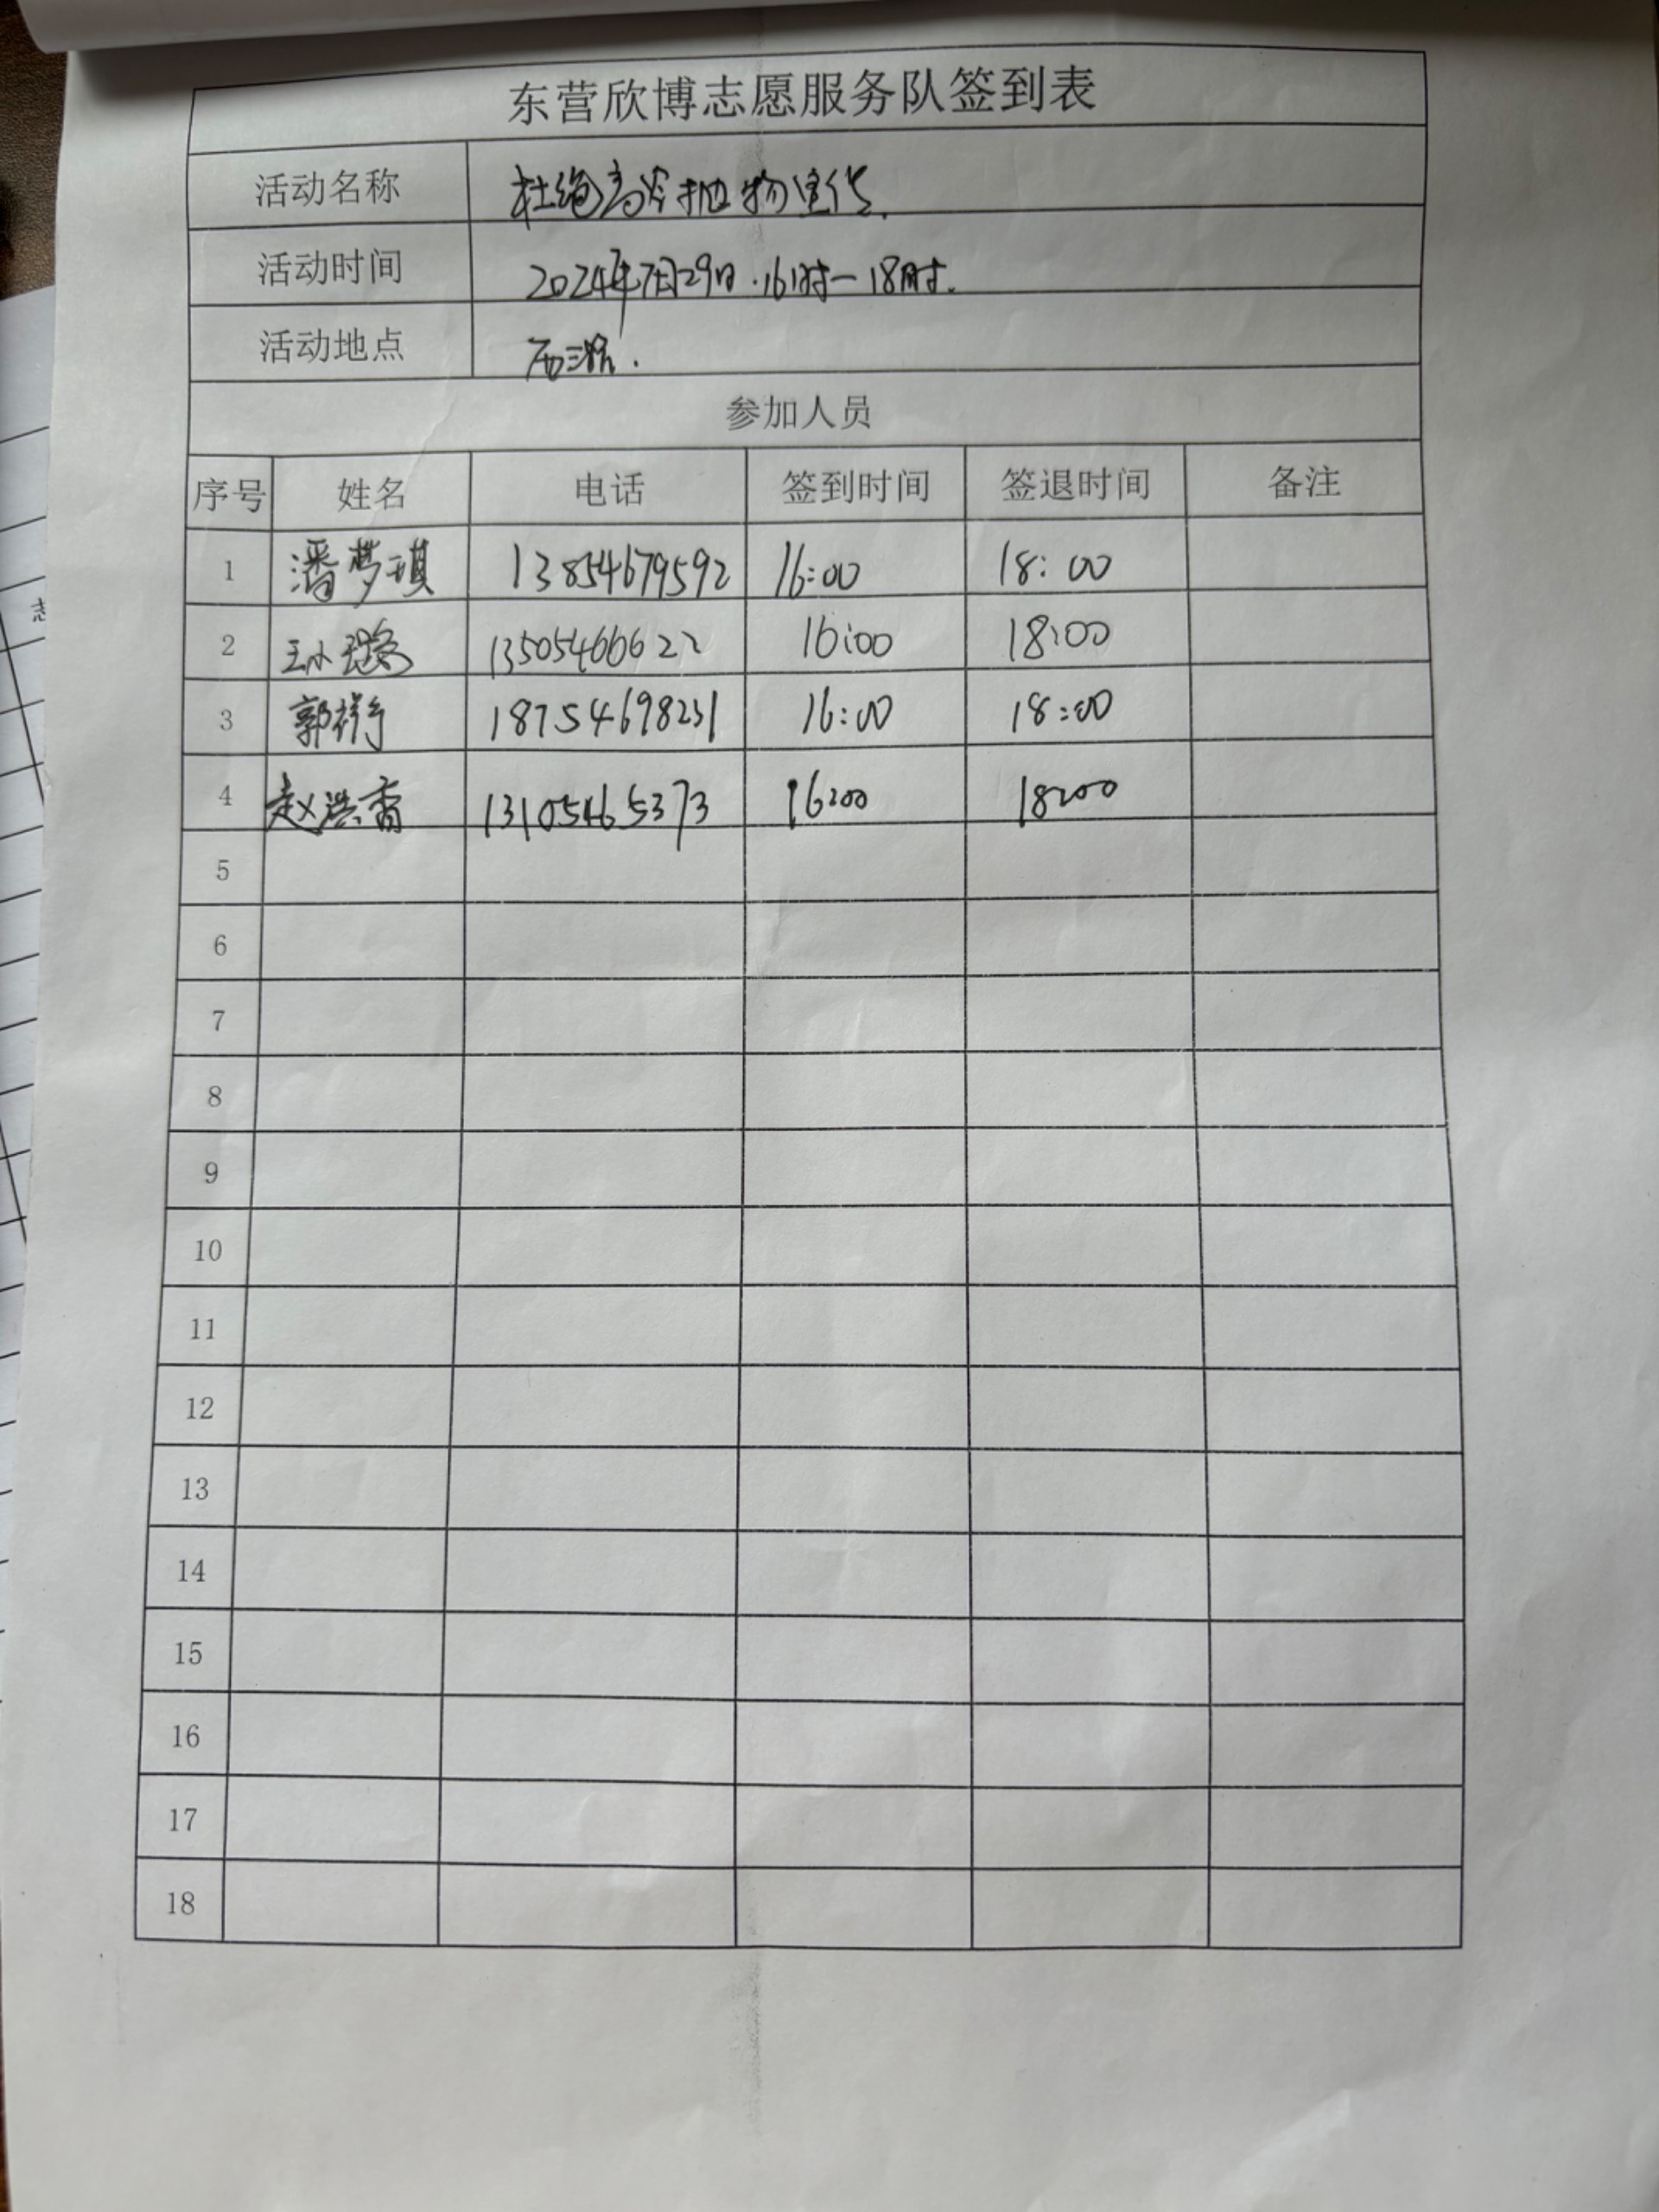 东营欣博志愿服务队签到表
活动名称 杜绝高空抛物宣传.
活动时间 2024年7月29日.16时—18时.
活动地点 西三路.
参加人员
序号 姓名 电话 签到时间 签退时间 备注
1 潘梦琪 13854679592 16:00 18:00
2 王小璐 13505466622 16:00 18:00
3 郭祥宇 18754698231 16:00 18:00
4 赵洪霄 13105465373 16:00 18:00
5
6
7
8
9
10
11
12
13
14
15
16
17
18